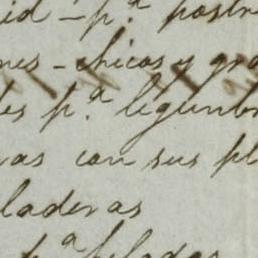 id - p.ª postr
nes - chicos y gra
les p.ª legumbr
as con sus pl
laderas
p.ª helados